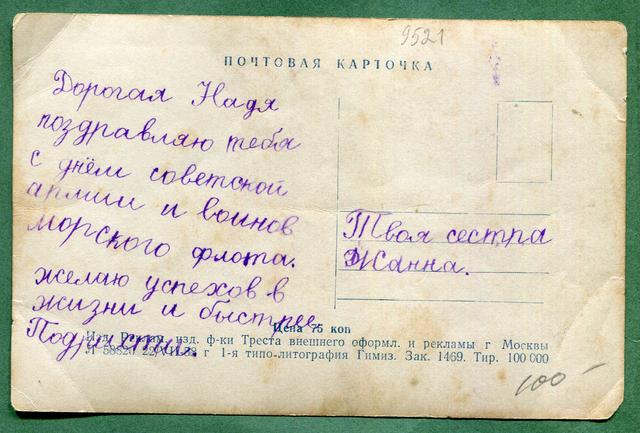 9521
ПОЧТОВАЯ КАРТОЧКА
Дорогая Надя
поздравляю тебя
с днём советской
армии и воинов
морского флота.
желаю успехов в
жизни и быстрее
Подрасти.
Твоя сестра
Жанна.
Цена 75 коп
Изд. Реклам. изд. ф-ки Треста внешнего оформл. и рекламы г Москвы
Л 58820 г 1-я типо-литография Гимиз. Зак. 1469. Тир. 100 000
100-